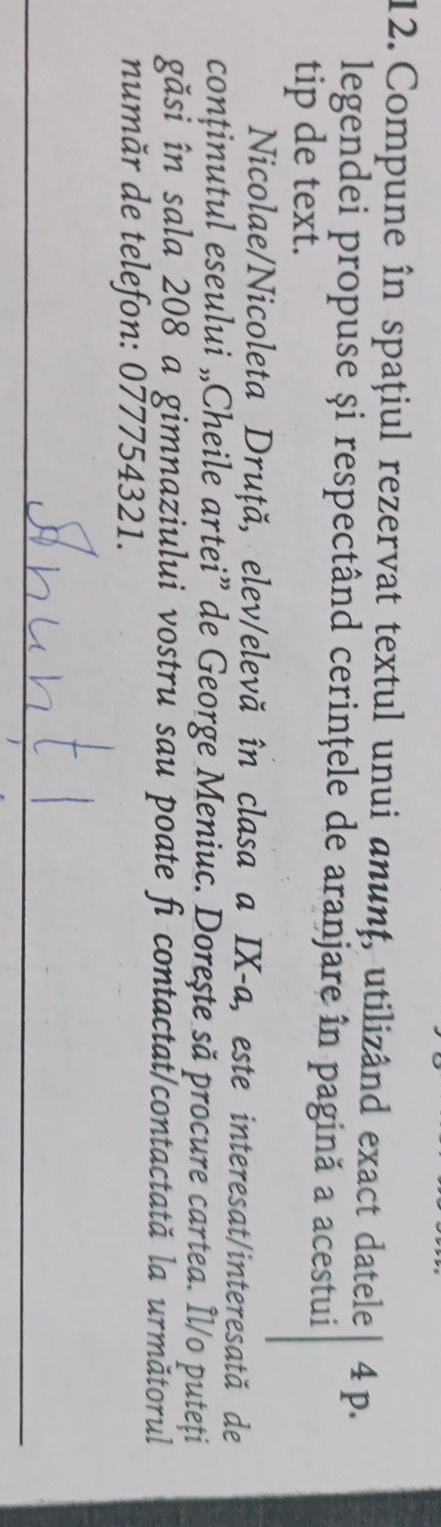 12. Compune în spațiul rezervat textul unui anunț, utilizând exact datele
legendei propuse și respectând cerințele de aranjare în pagină a acestui
tip de text.
4 p.
Nicolae/Nicoleta Druță, elev/elevă în clasa a IX-a, este interesat/interesată de
conținutul eseului „Cheile artei” de George Meniuc. Dorește să procure cartea. Îl/o puteți
găsi în sala 208 a gimnaziului vostru sau poate fi contactat/contactată la următorul
număr de telefon: 077754321.
Anunț